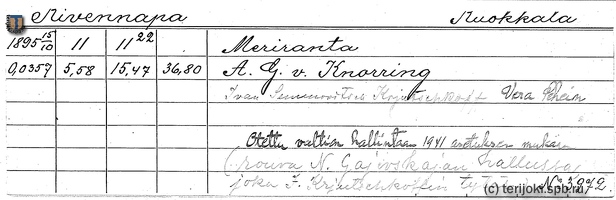 Kivennapa Kuokkala
1895 15/10 11 11 22 Meriranta
0,0357 5,58 15,47 36,80 A. G. v. Knorring
Ivan Vera
Otettu valtion hallintaan 1941 asetuksen mukaan
(rouva N. Gajevskajan hallussa,
joka I. Krjutschkoffin № 3972
(c) terijoki.spb.ru